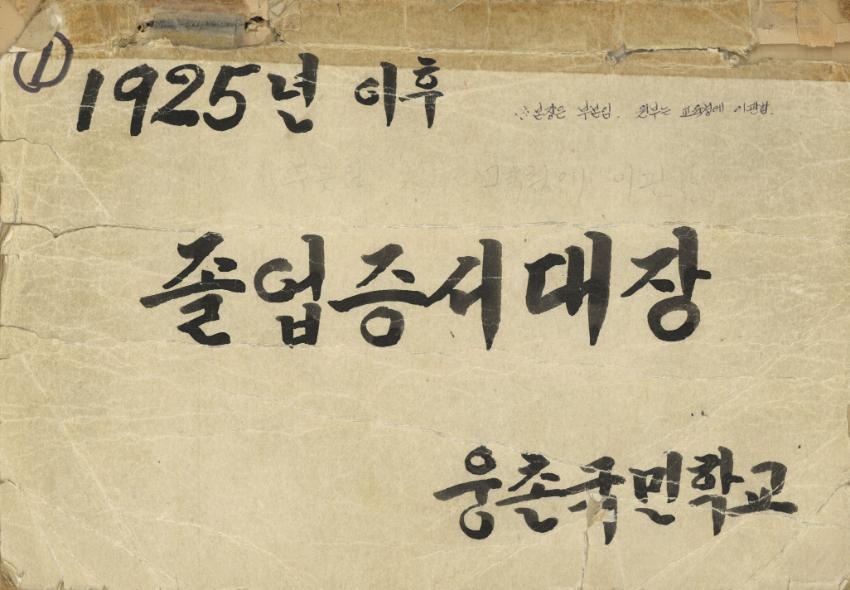 ①
1925년 이후
※ 본장은 부본임. 원부는 교육청에 이관함.
졸업증서대장
웅촌국민학교